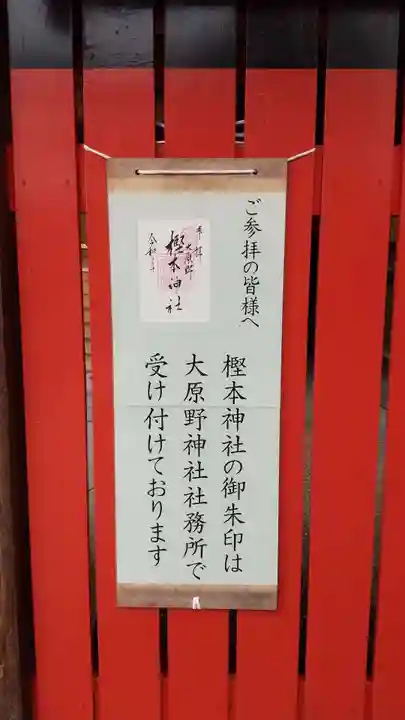 ご参拝の皆様へ
奉拝
大原野
樫本神社
樫本神社の御朱印は
大原野神社社務所で
受け付けております